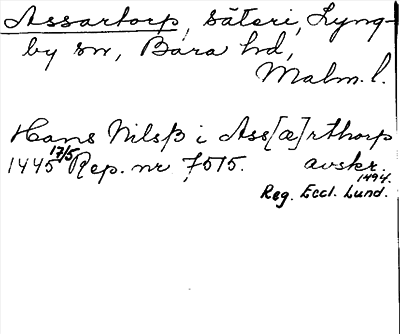 Assartorp, säteri, Lyng-
by sn, Bara hd,
Malm. l.
Hans Nilsß i Ass[æ]rthorp
1445 17/5 Rep. nr 7515. avskr.
1494.
Reg. Eccl. Lund.